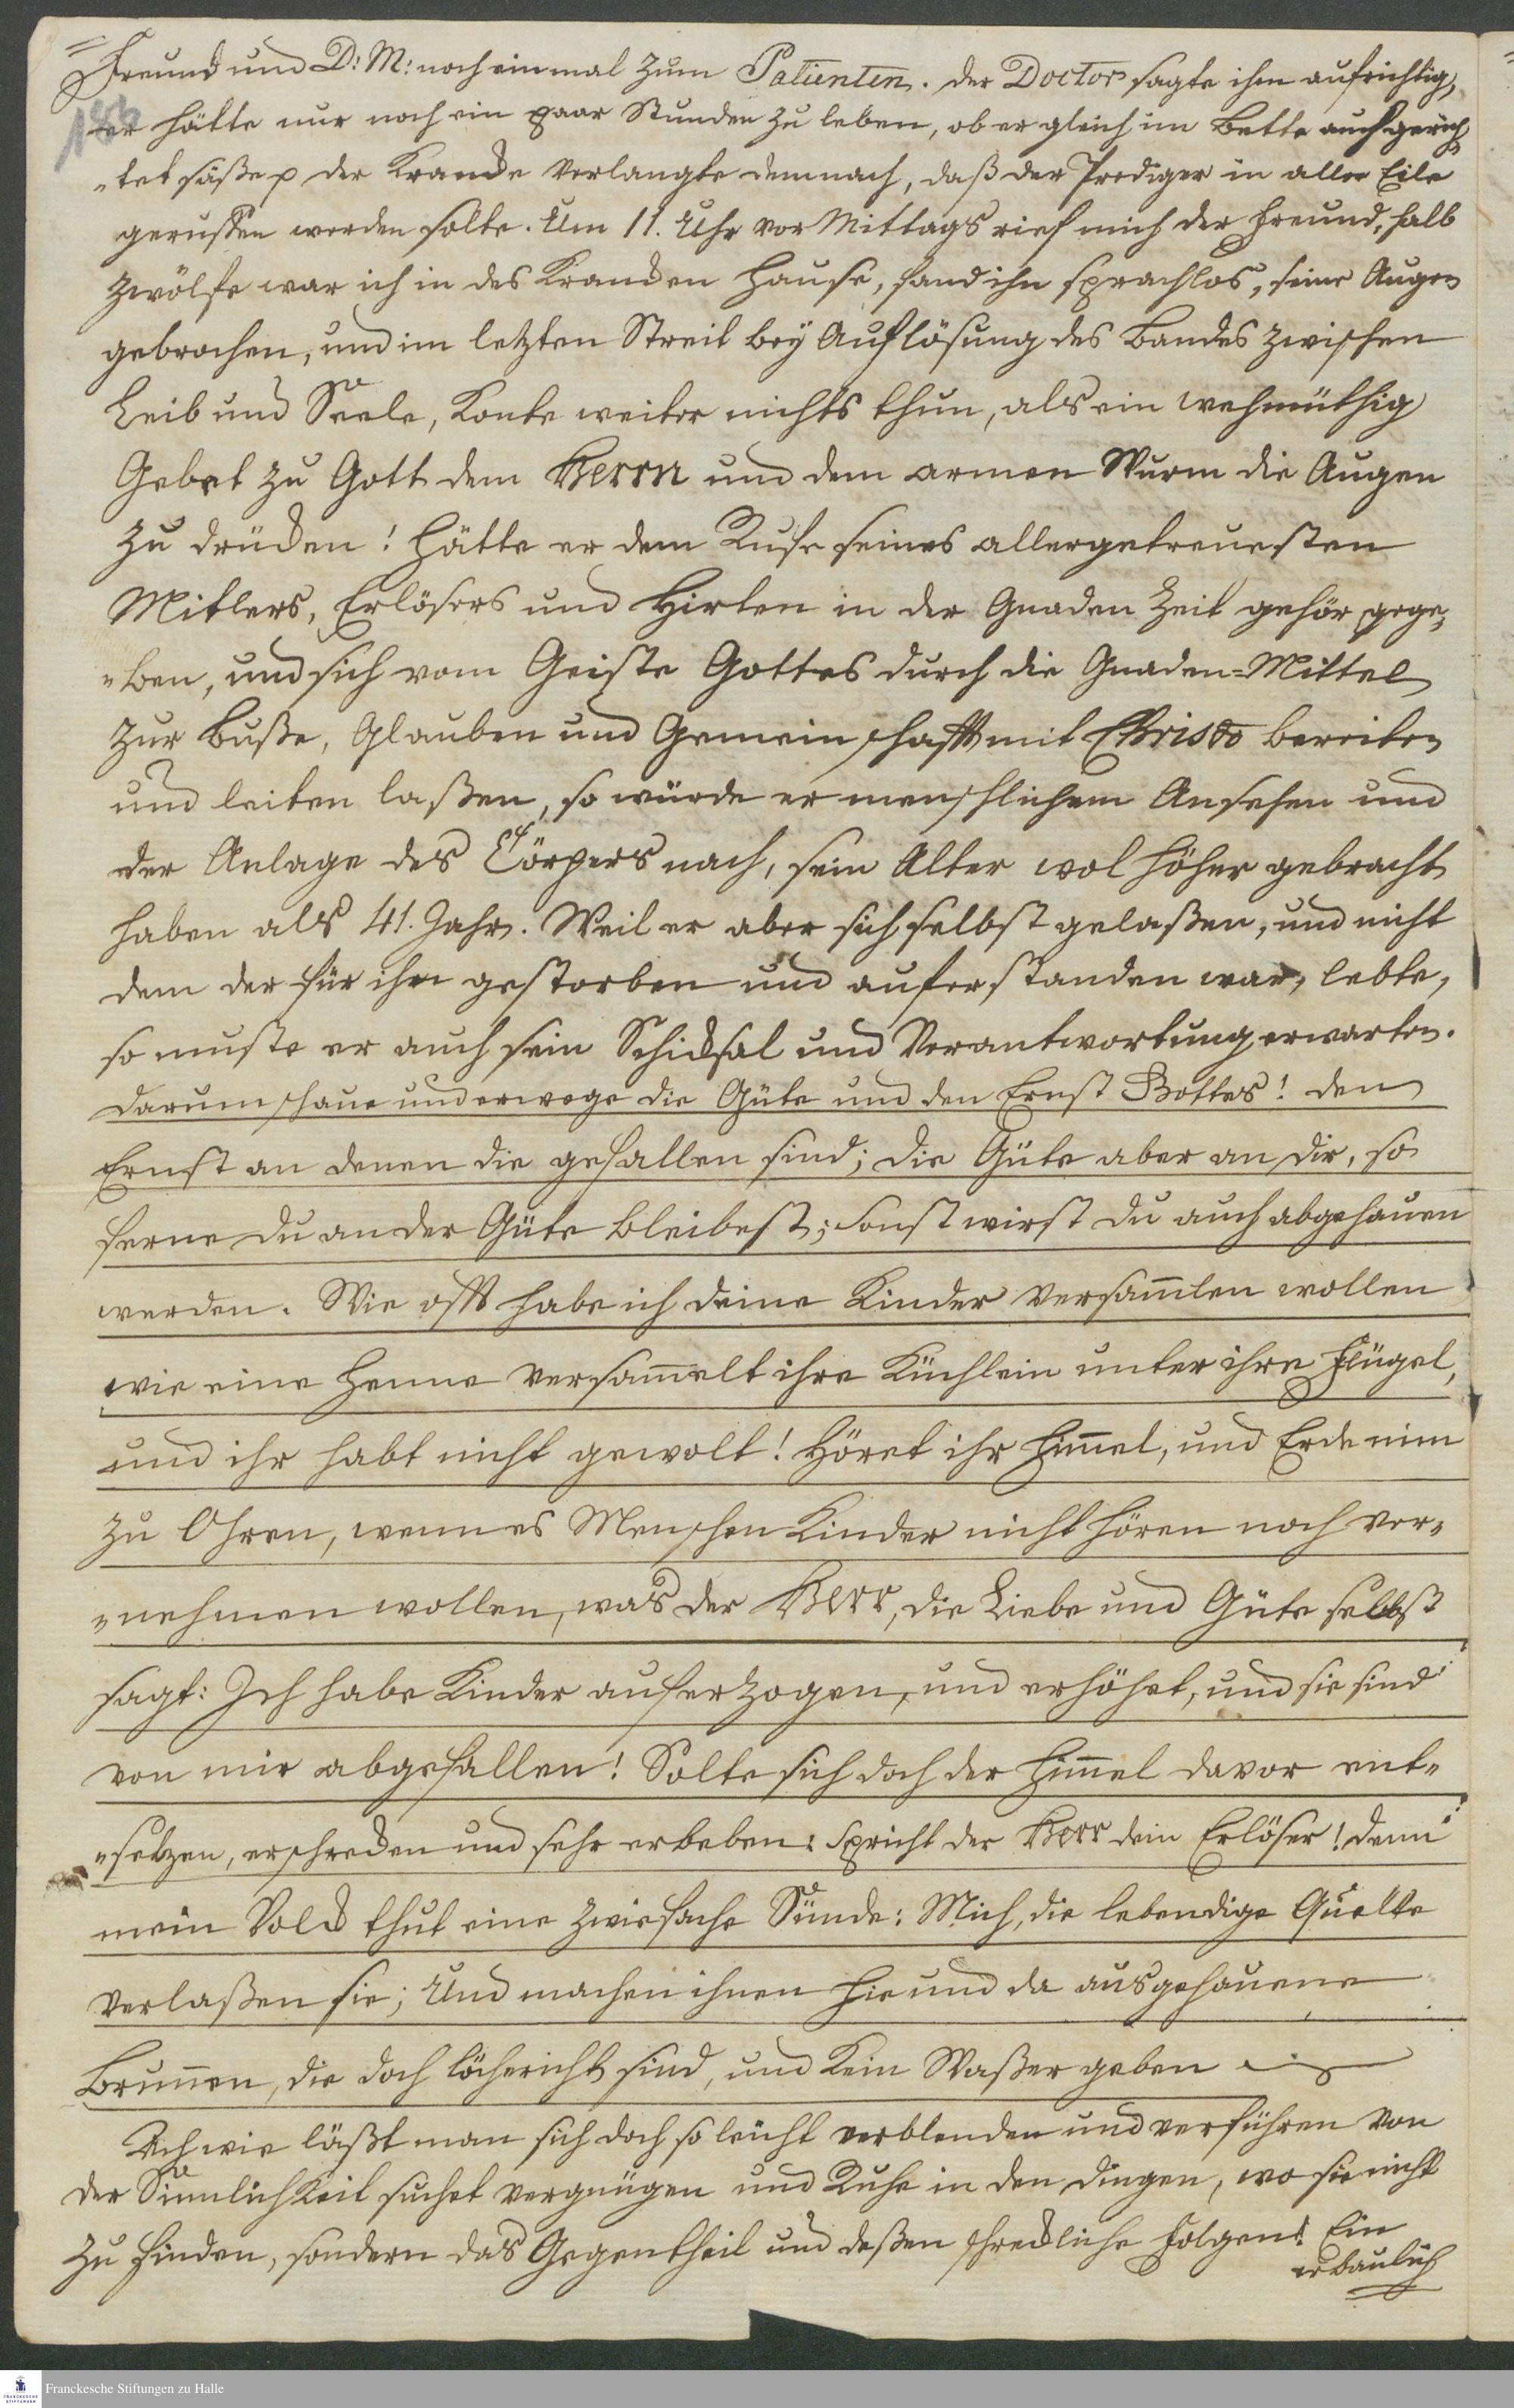 Freund und D: M: noch einmal zum Patienten. Der Doctor sagte ihm aufrichtig,
188
er hätte nur noch ein paar Stunden zu leben, ob er gleich im Bette aufgerich¬
¬tet säße p der Krancke verlangte demnach, daß der Prediger in aller Eile
geruffen werden solte. Um 11. Uhr vor Mittags rief mich der Freund, halb
zwölfe war ich in des Krancken Hause, fand ihn sprachlos, seine Augen
gebrochen, und im letzten Streit bey Auflösung des Bandes zwischen
Leib und Seele, konte weiter nichts thun, als ein wehmüthig
Gebet zu Gott dem Herrn und dem armen Wurm die Augen
zu drücken! Hätte er dem Rufe seines allergetreuesten
Mitlers, Erlösers und Hirten in der Gnaden Zeit gehör gege¬
¬ben, und sich vom Geiste Gottes durch die Gnaden-Mittel
zur Buße, Glauben und Gemeinschafft mit Christo bereiten
und leiten laßen, so würde er menschlichem Ansehen und
der Anlage des Cörpers nach, sein Alter wol höher gebracht
haben als 41. Jahr. Weil er aber sich selbst gelaßen, und nicht
dem der für ihn gestorben und auferstanden war, lebte,
so muste er auch sein Schicksal und Verantwortung erwarten.
Darum schaue und erwege die Güte und den Ernst Gottes! den
Ernst an denen die gefallen sind; die Güte aber an dir, so
ferne du an der Güte bleibest; sonst wirst du auch abgehauen
werden. Wie offt habe ich deine Kinder versam̄len wollen
wie eine Henne versam̄elt ihre Küchlein unter ihre Flügel,
und ihr habt nicht gewolt! Höret ihr Him̄el, und Erde nim
zu Ohren, wenn es Menschen Kinder nicht hören noch ver¬
¬nehmen wollen, was der Herr, die Liebe und Güte selbst
sagt: Ich habe Kinder auferzogen, und erhöhet, und sie sind
von mir abgefallen! Solte sich doch der Him̄el davor ent¬
¬setzen, erschrecken und sehr erbeben: spricht der Herr dein Erlöser! denn
mein Volck thut eine zwiefache Sünde: Mich, die lebendige Quelle
verlaßen sie; Und machen ihnen hie und da ausgehauene
Brun̄en, die doch löchericht sind, und kein Waßer geben
Ach wie läßt man sich doch so leicht verblenden und verführen von
der Sinnlichkeit suchet vergnügen und Ruhe in den Dingen, wo sie nicht
zu finden, sondern das Gegentheil und deßen schreckliche Folgen! Ein
erbaulich
Franckesche Stiftungen zu Halle